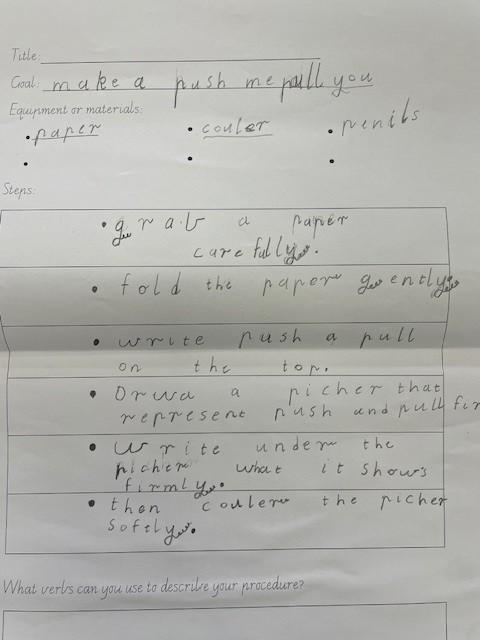 Title:
Goal: make a push me pull you
Equipment or materials:
• paper • couler • penils
• • •
Steps:
• grab a paper
carefully.
• fold the paper gently.
• write push a pull
on the top.
• Drwa a picher that
represent push and pull fir
• Write under the
picher what it shows
firmly.
• then couler the picher
softly.
What verbs can you use to describe your procedure?